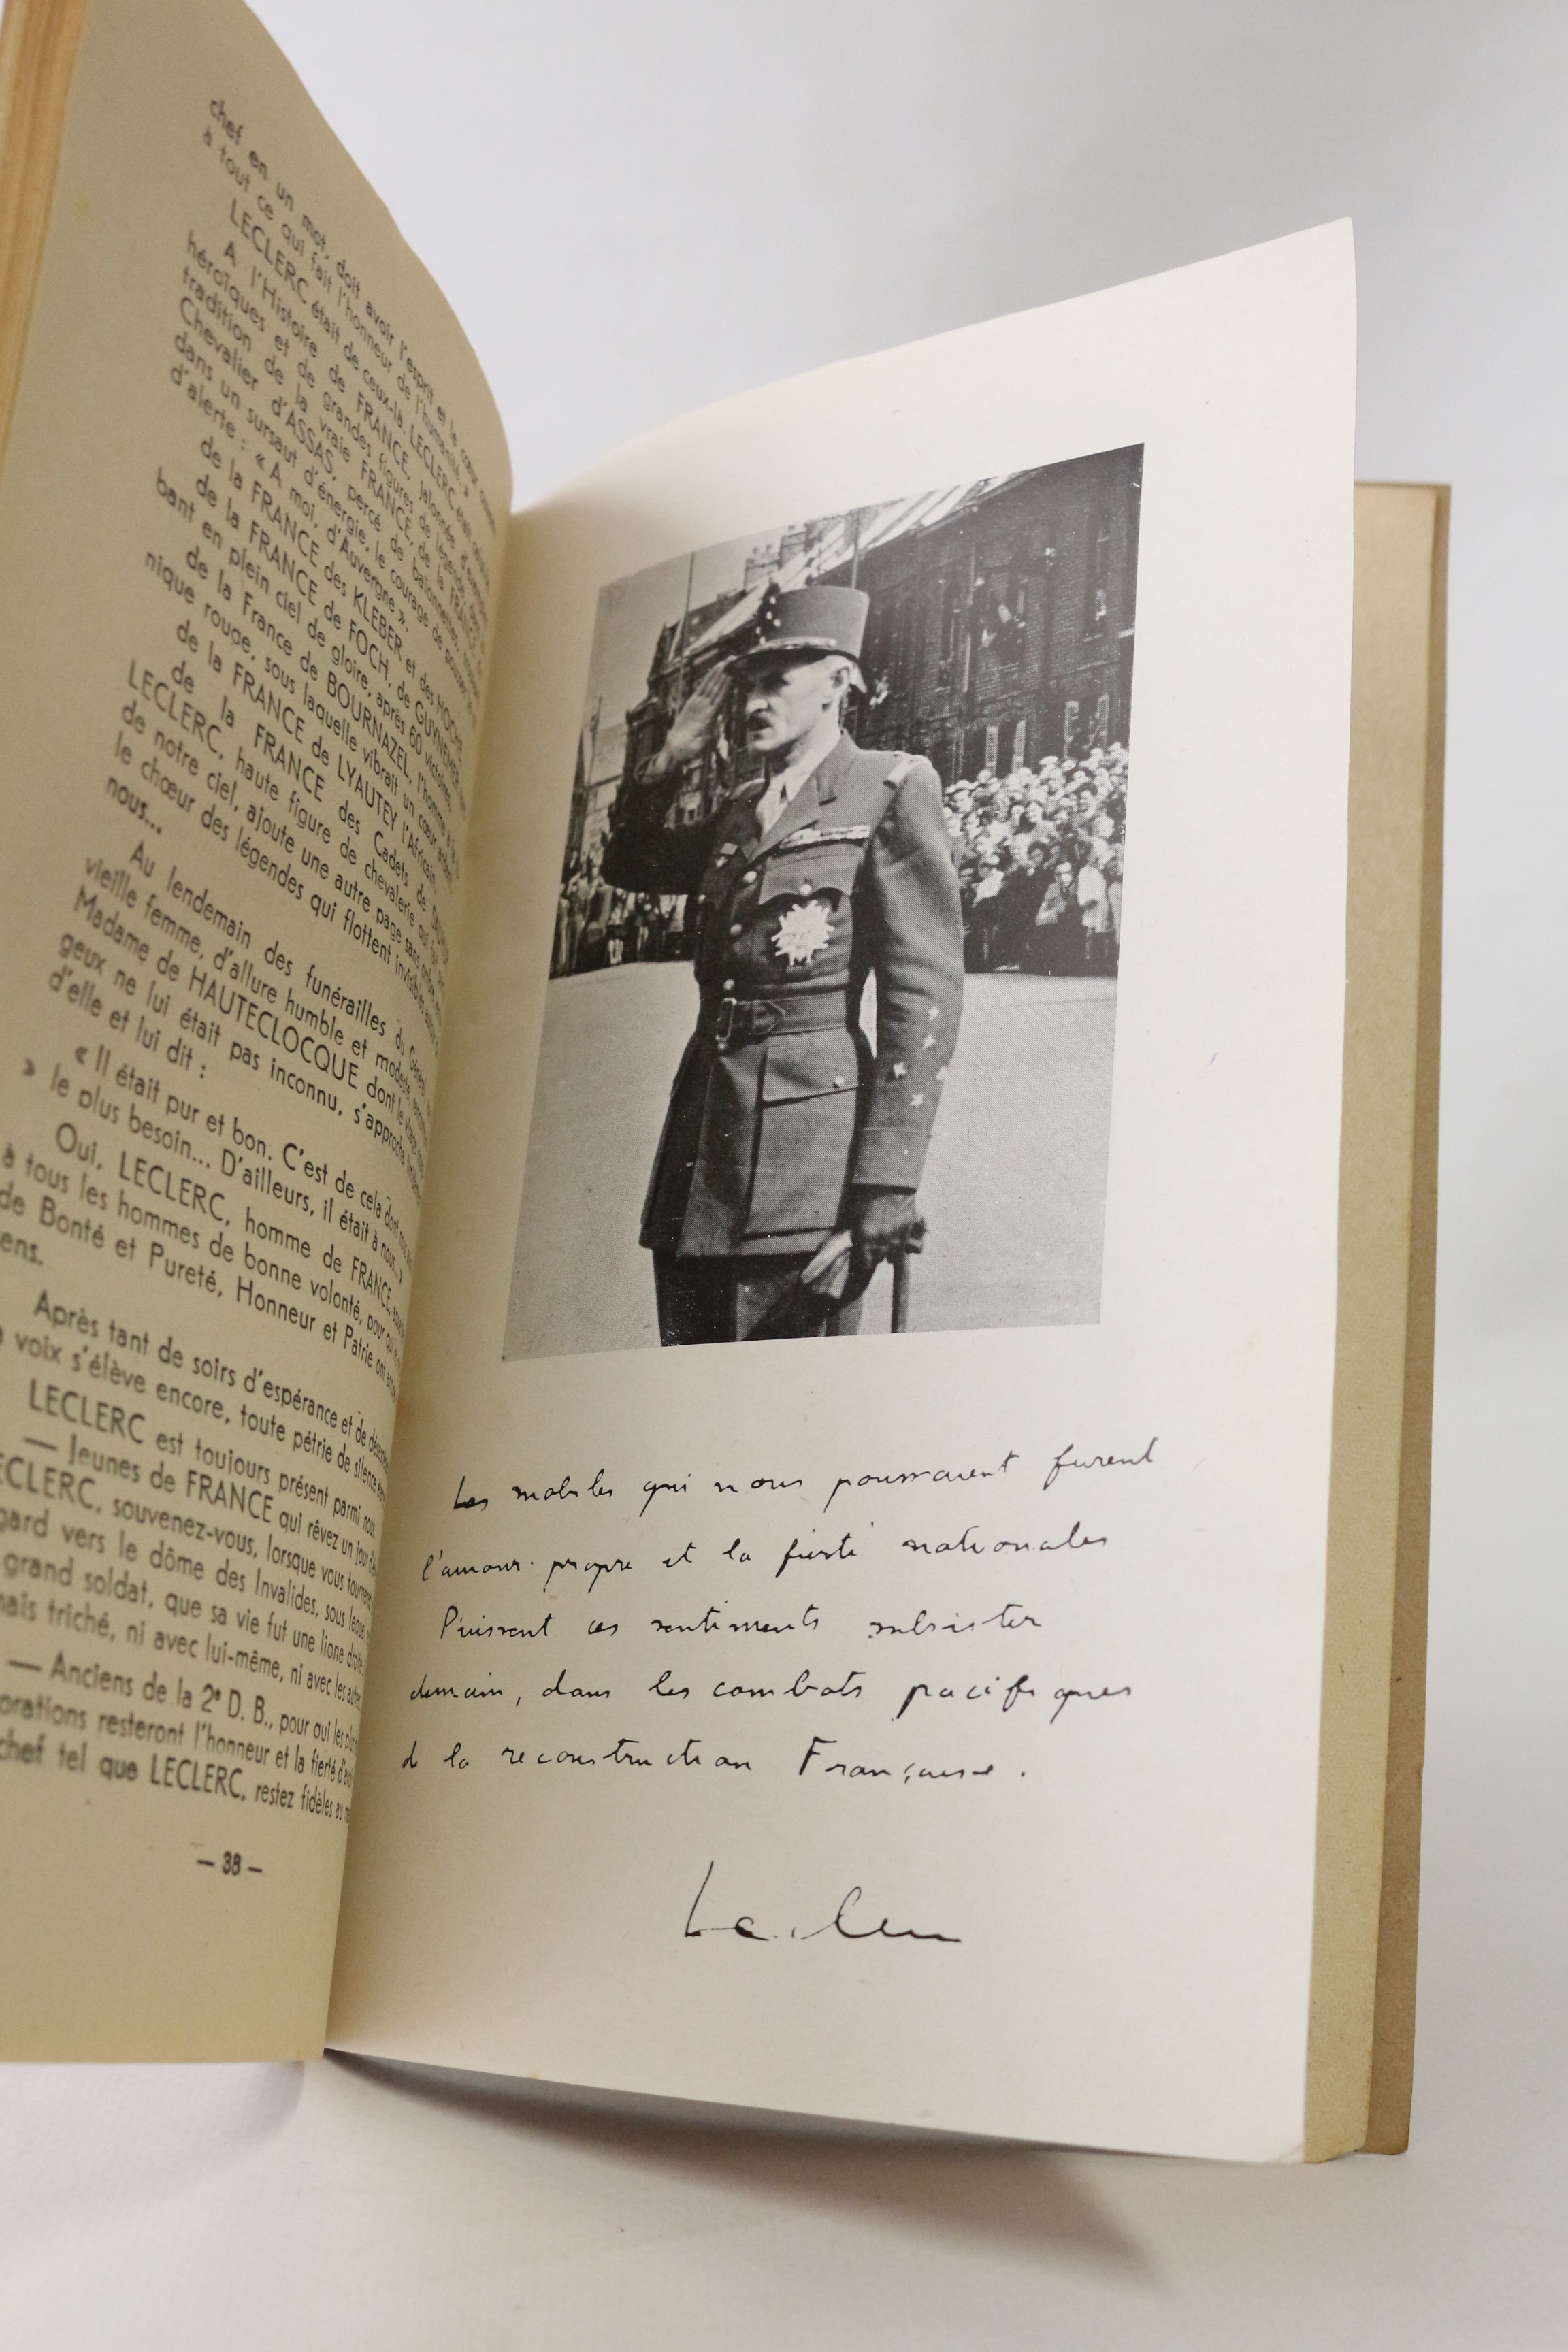 chef en un mot, doit avoir l'esprit et le cœur
à tout ce qui fait l'honneur de l'humanité. »
LECLERC était de ceux-là. LECLERC était
A l'Histoire de FRANCE, jalonnée
héroïques et de grandes figures de légende,
tradition de la vraie FRANCE, de la FRANCE
Chevalier d'ASSAS, percé de baïonnettes,
dans un sursaut d'énergie, le courage de pousser
d'alerte : « A moi, d'Auvergne ».
de la FRANCE des KLEBER et des HOCHE,
de la FRANCE de FOCH, de GUYNEMER
bant en plein ciel de gloire, après 60 victoires,
de la France de BOURNAZEL, l'homme à la
nique rouge, sous laquelle vibrait un cœur
de la FRANCE de LYAUTEY l'Africain,
de la FRANCE des Cadets de
LECLERC, haute figure de chevalerie qui
de notre ciel, ajoute une autre page sans
le chœur des légendes qui flottent invisibles
nous...
Au lendemain des funérailles du
vieille femme, d'allure humble et modeste,
Madame de HAUTECLOCQUE dont le
geux ne lui était pas inconnu, s'approcha
d'elle et lui dit :
« Il était pur et bon. C'est de cela dont
» le plus besoin... D'ailleurs, il était à nous...»
Oui, LECLERC, homme de FRANCE,
à tous les hommes de bonne volonté, pour qui
de Bonté et Pureté, Honneur et Patrie ont
ens.
Après tant de soirs d'espérance et de
voix s'élève encore, toute pétrie de silence
LECLERC est toujours présent parmi nous.
— Jeunes de FRANCE qui rêvez un jour
ECLERC, souvenez-vous, lorsque vous
gard vers le dôme des Invalides, sous lequel
grand soldat, que sa vie fut une ligne droite,
mais triché, ni avec lui-même, ni avec les autres.
— Anciens de la 2e D. B., pour qui les
orations resteront l'honneur et la fierté
chef tel que LECLERC, restez fidèles au
— 38 —
Les mobiles qui nous poussaient furent
l'amour-propre et la fierté nationales
Puissent ces sentiments subsister
demain, dans les combats pacifiques
de la reconstruction Française.
Leclerc